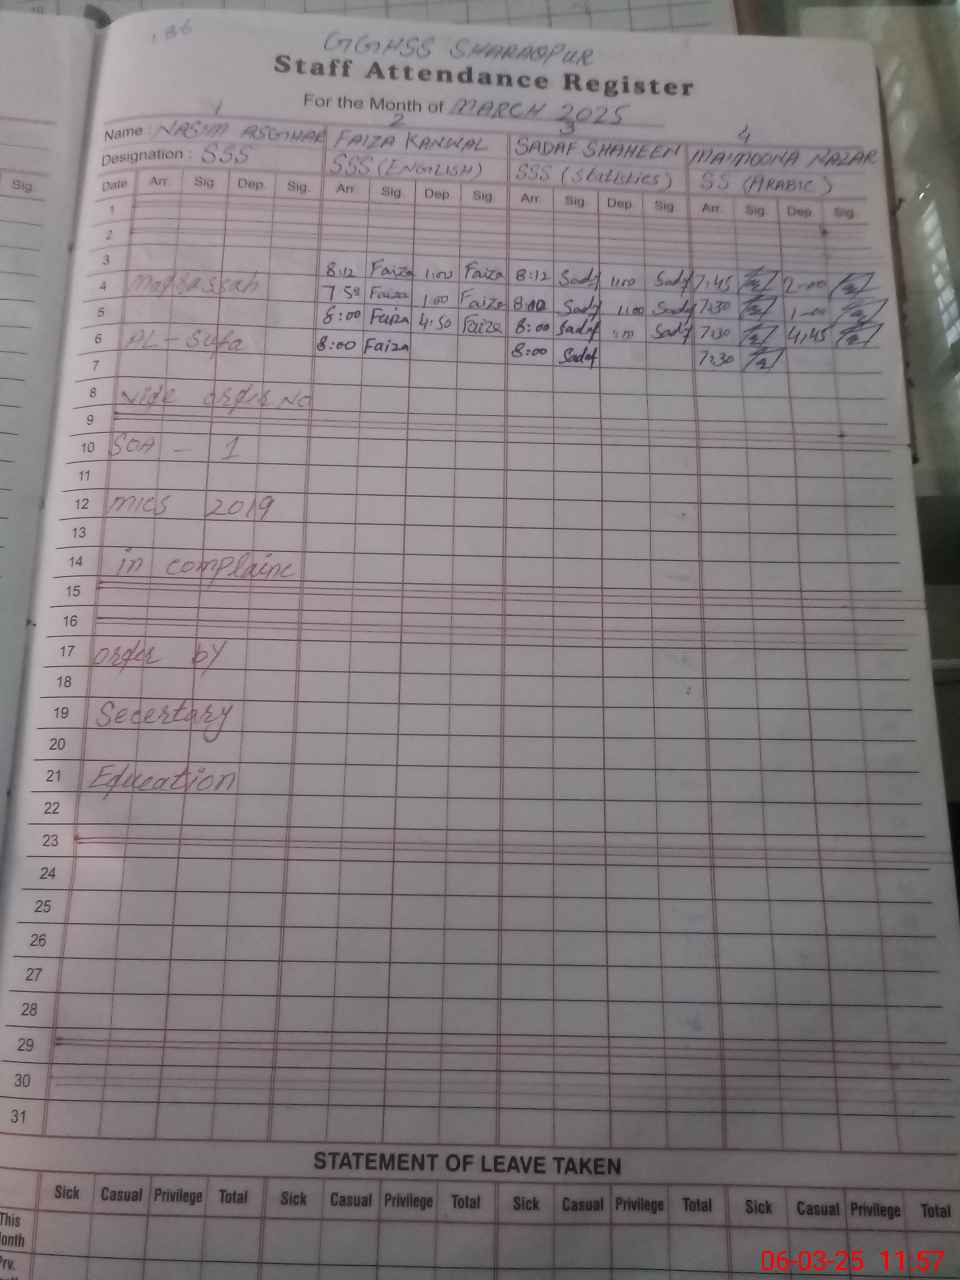 186
GGHSS SHARAQPUR
Staff Attendance Register
For the Month of MARCH 2025
1 2 3 4
Name : NASIM ASGHAR FAIZA KANWAL SADAF SHAHEEN MAIMOONA NAZAR
Designation : SSS SSS (ENGLISH) SSS (Statistics) SS (ARABIC)
Sig.
Date Arr. Sig Dep. Sig. Arr Sig. Dep. Sig Arr. Sig. Dep. Sig Arr. Sig Dep. Sig.
1
2
3 8:12 Faiza 1:00 Faiza 8:12 Sadaf 1:00 Sadaf 7:45 2-00
4 7:50 Faiza 1:00 Faiza 8:00 Sadaf 1:00 Sadaf 7:30 1-00
5 8:00 Faiza 4:50 Faiza 8:00 Sadaf Sadaf 7:30 4:45
6 AL-Sufa 8:00 Faiza 8:00 Sadaf 7:30
7
8 vide order No
9
10 SOA - 1
11
12 MICS 2019
13
14 in complainc
15
16
17 order by
18
19 Secertary
20
21 Education
22
23
24
25
26
27
28
29
30
31
STATEMENT OF LEAVE TAKEN
Sick Casual Privilege Total Sick Casual Privilege Total Sick Casual Privilege Total Sick Casual Privilege Total
This
Month
Prv.
06-03-25 11:57